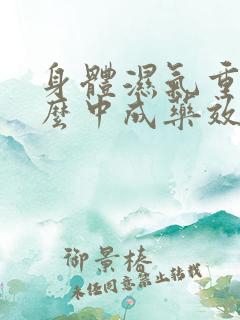 身體濕氣重
麼中成藥效
御景椿
未经同意禁止转载